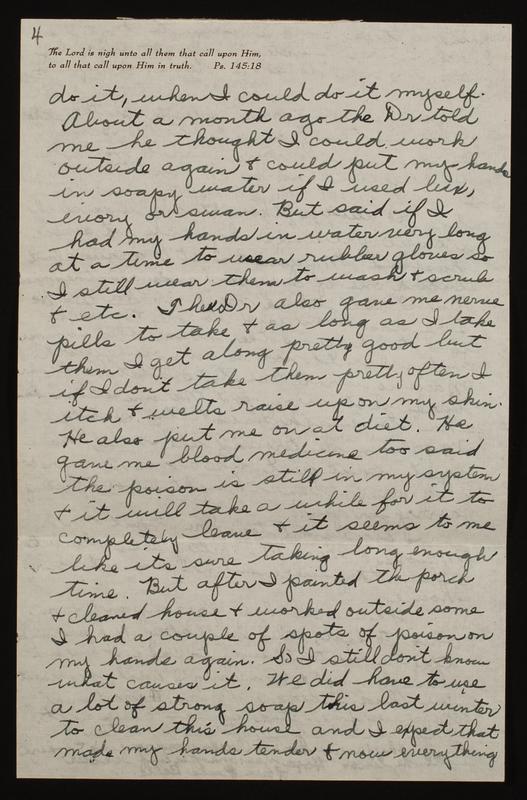 4
The Lord is nigh unto all them that call upon Him,
to all that call upon Him in truth. Ps. 145:18
do it, when I could do it myself.
About a month ago the Dr told
me he thought I could work
outside again & could put my hands
in soapy water if I used lux,
ivory or swan. But said if I
had my hands in water very long
at a time to wear rubber gloves so
I still wear them to wash & scrub
& etc. The Dr also gave me nerve
pills to take & as long as I take
them I get along pretty good but
if I dont take them pretty often I
itch & welts raise up on my skin.
He also put me on at diet. He
gave me blood medicine too said
the poison is still in my system
& it will take a while for it to
completely leave & it seems to me
like its sure taking long enough
time. But after I painted the porch
& cleaned house & worked outside some
I had a couple of spots of poison on
my hands again. So I still dont know
what causes it. We did have to use
a lot of strong soap this last winter
to clean this house and I expect that
made my hands tender & now everything